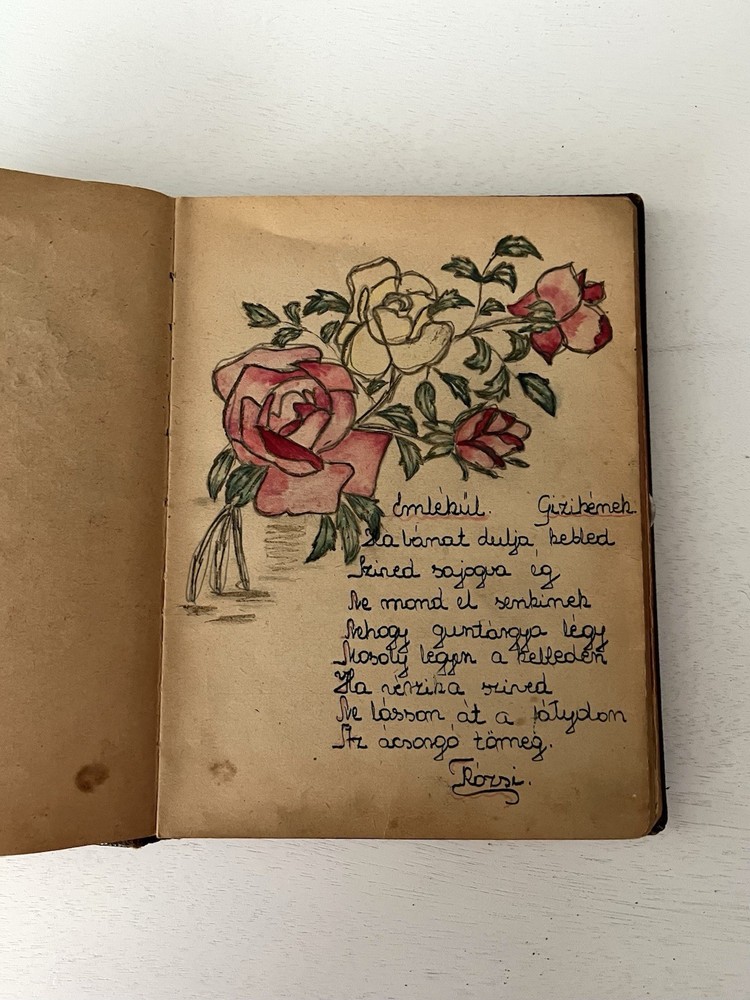 Emlékül. Gizikének
Ha bánat dulja kebled
Szived sajogva ég
Ne mond el senkinek
Nehogy guntárgya légy
Mosoly légyen a kebleden
Ha vérzik a szived
Ne lásson át a fátydon
Az ácsorgó tömeg.
Rózsi.